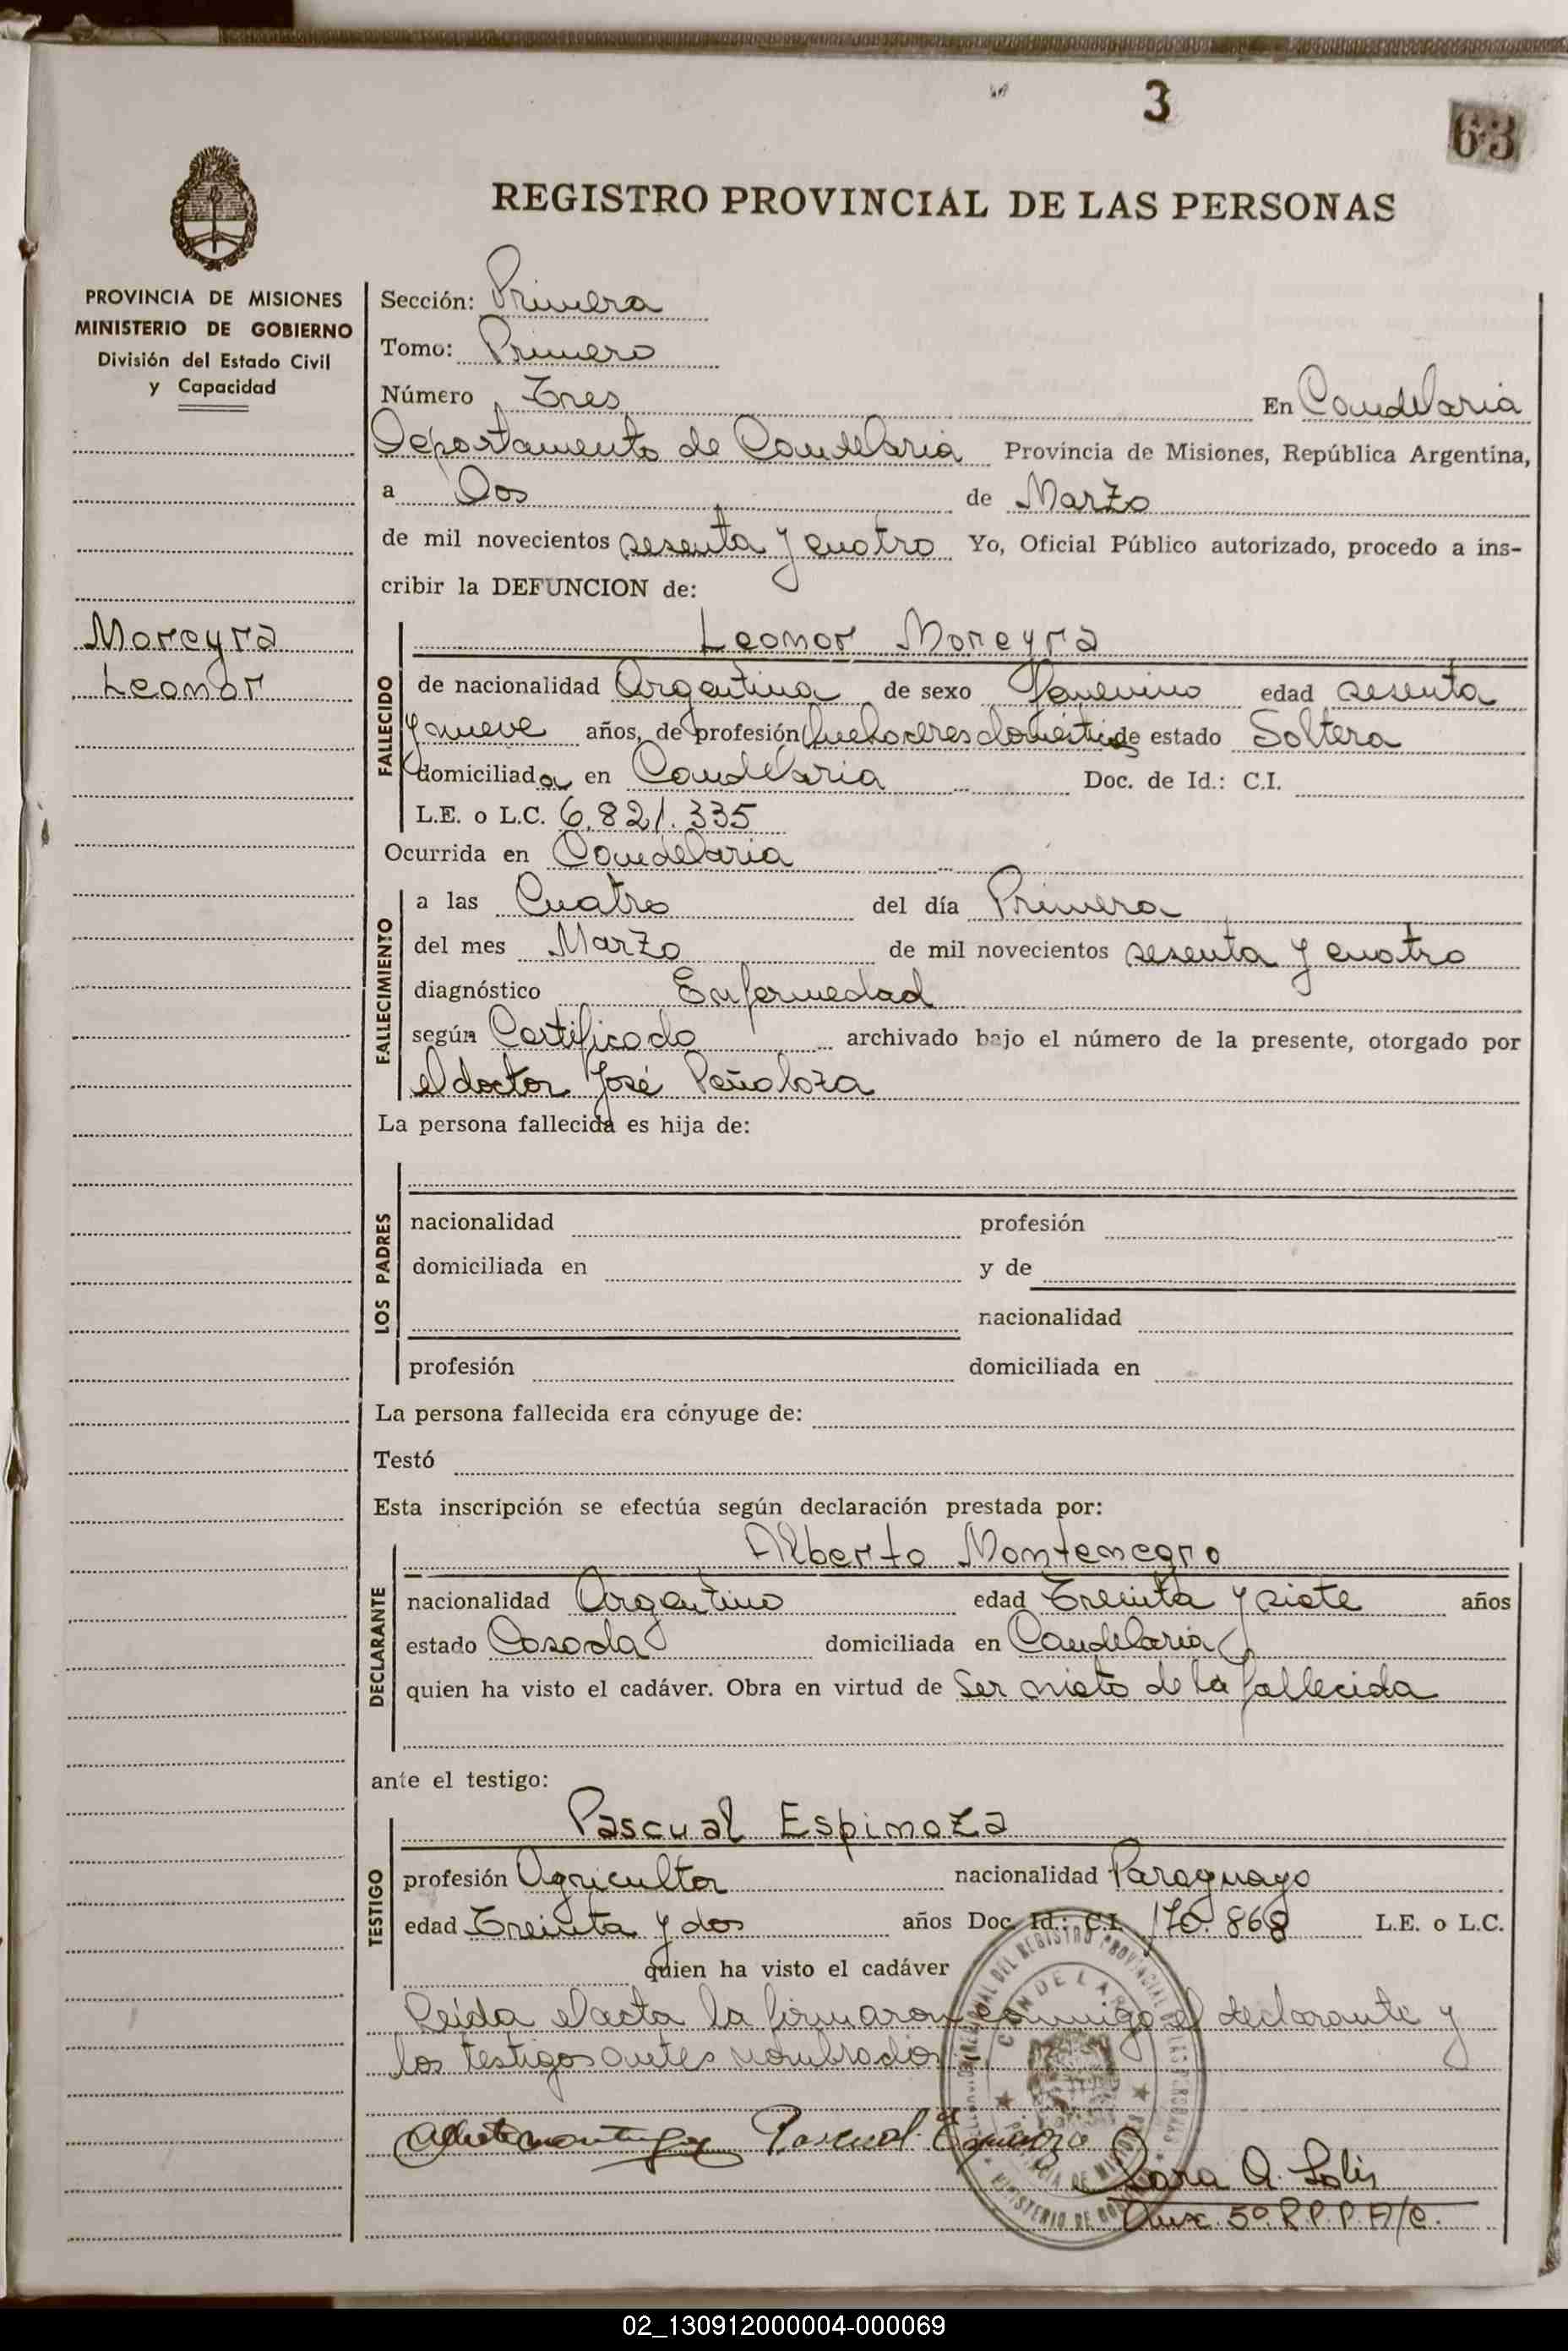 3
63
REGISTRO PROVINCIAL DE LAS PERSONAS
PROVINCIA DE MISIONES
MINISTERIO DE GOBIERNO
División del Estado Civil
y Capacidad
Moreyra
Leonor
Sección: Primera
Tomo: Primero
Número Tres En Candelaria
Departamento de Candelaria Provincia de Misiones, República Argentina,
a Dos de Marzo
de mil novecientos sesenta y cuatro Yo, Oficial Público autorizado, procedo a ins-
cribir la DEFUNCION de:
FALLECIDO
Leonor Moreyra
de nacionalidad Argentina de sexo Femenino edad sesenta
y nueve años, de profesión quehaceres domésticos de estado Soltera
domiciliada en Candelaria Doc. de Id.: C.I.
L.E. o L.C. 6.821.335
Ocurrida en Candelaria
FALLECIMIENTO
a las Cuatro del día Primero
del mes Marzo de mil novecientos sesenta y cuatro
diagnóstico Enfermedad
según Certificado archivado bajo el número de la presente, otorgado por
el doctor José Peñaloza
La persona fallecida es hija de:
LOS PADRES
nacionalidad profesión
domiciliada en y de
nacionalidad
profesión domiciliada en
La persona fallecida era cónyuge de:
Testó
Esta inscripción se efectúa según declaración prestada por:
DECLARANTE
Alberto Montenegro
nacionalidad Argentino edad Treinta y siete años
estado Casada domiciliada en Candelaria
quien ha visto el cadáver. Obra en virtud de Ser nieto de la fallecida
ante el testigo:
TESTIGO
Pascual Espinoza
profesión Agricultor nacionalidad Paraguayo
edad Treinta y dos años Doc. Id.: C.I. 170.868 L.E. o L.C.
quien ha visto el cadáver
Leida el acta la firmaron conmigo el declarante y
los testigos antes nombrados
Pascual Espinoza
Sara A. Solis
Aux. 5º R.P.P. A/C.
02_130912000004-000069